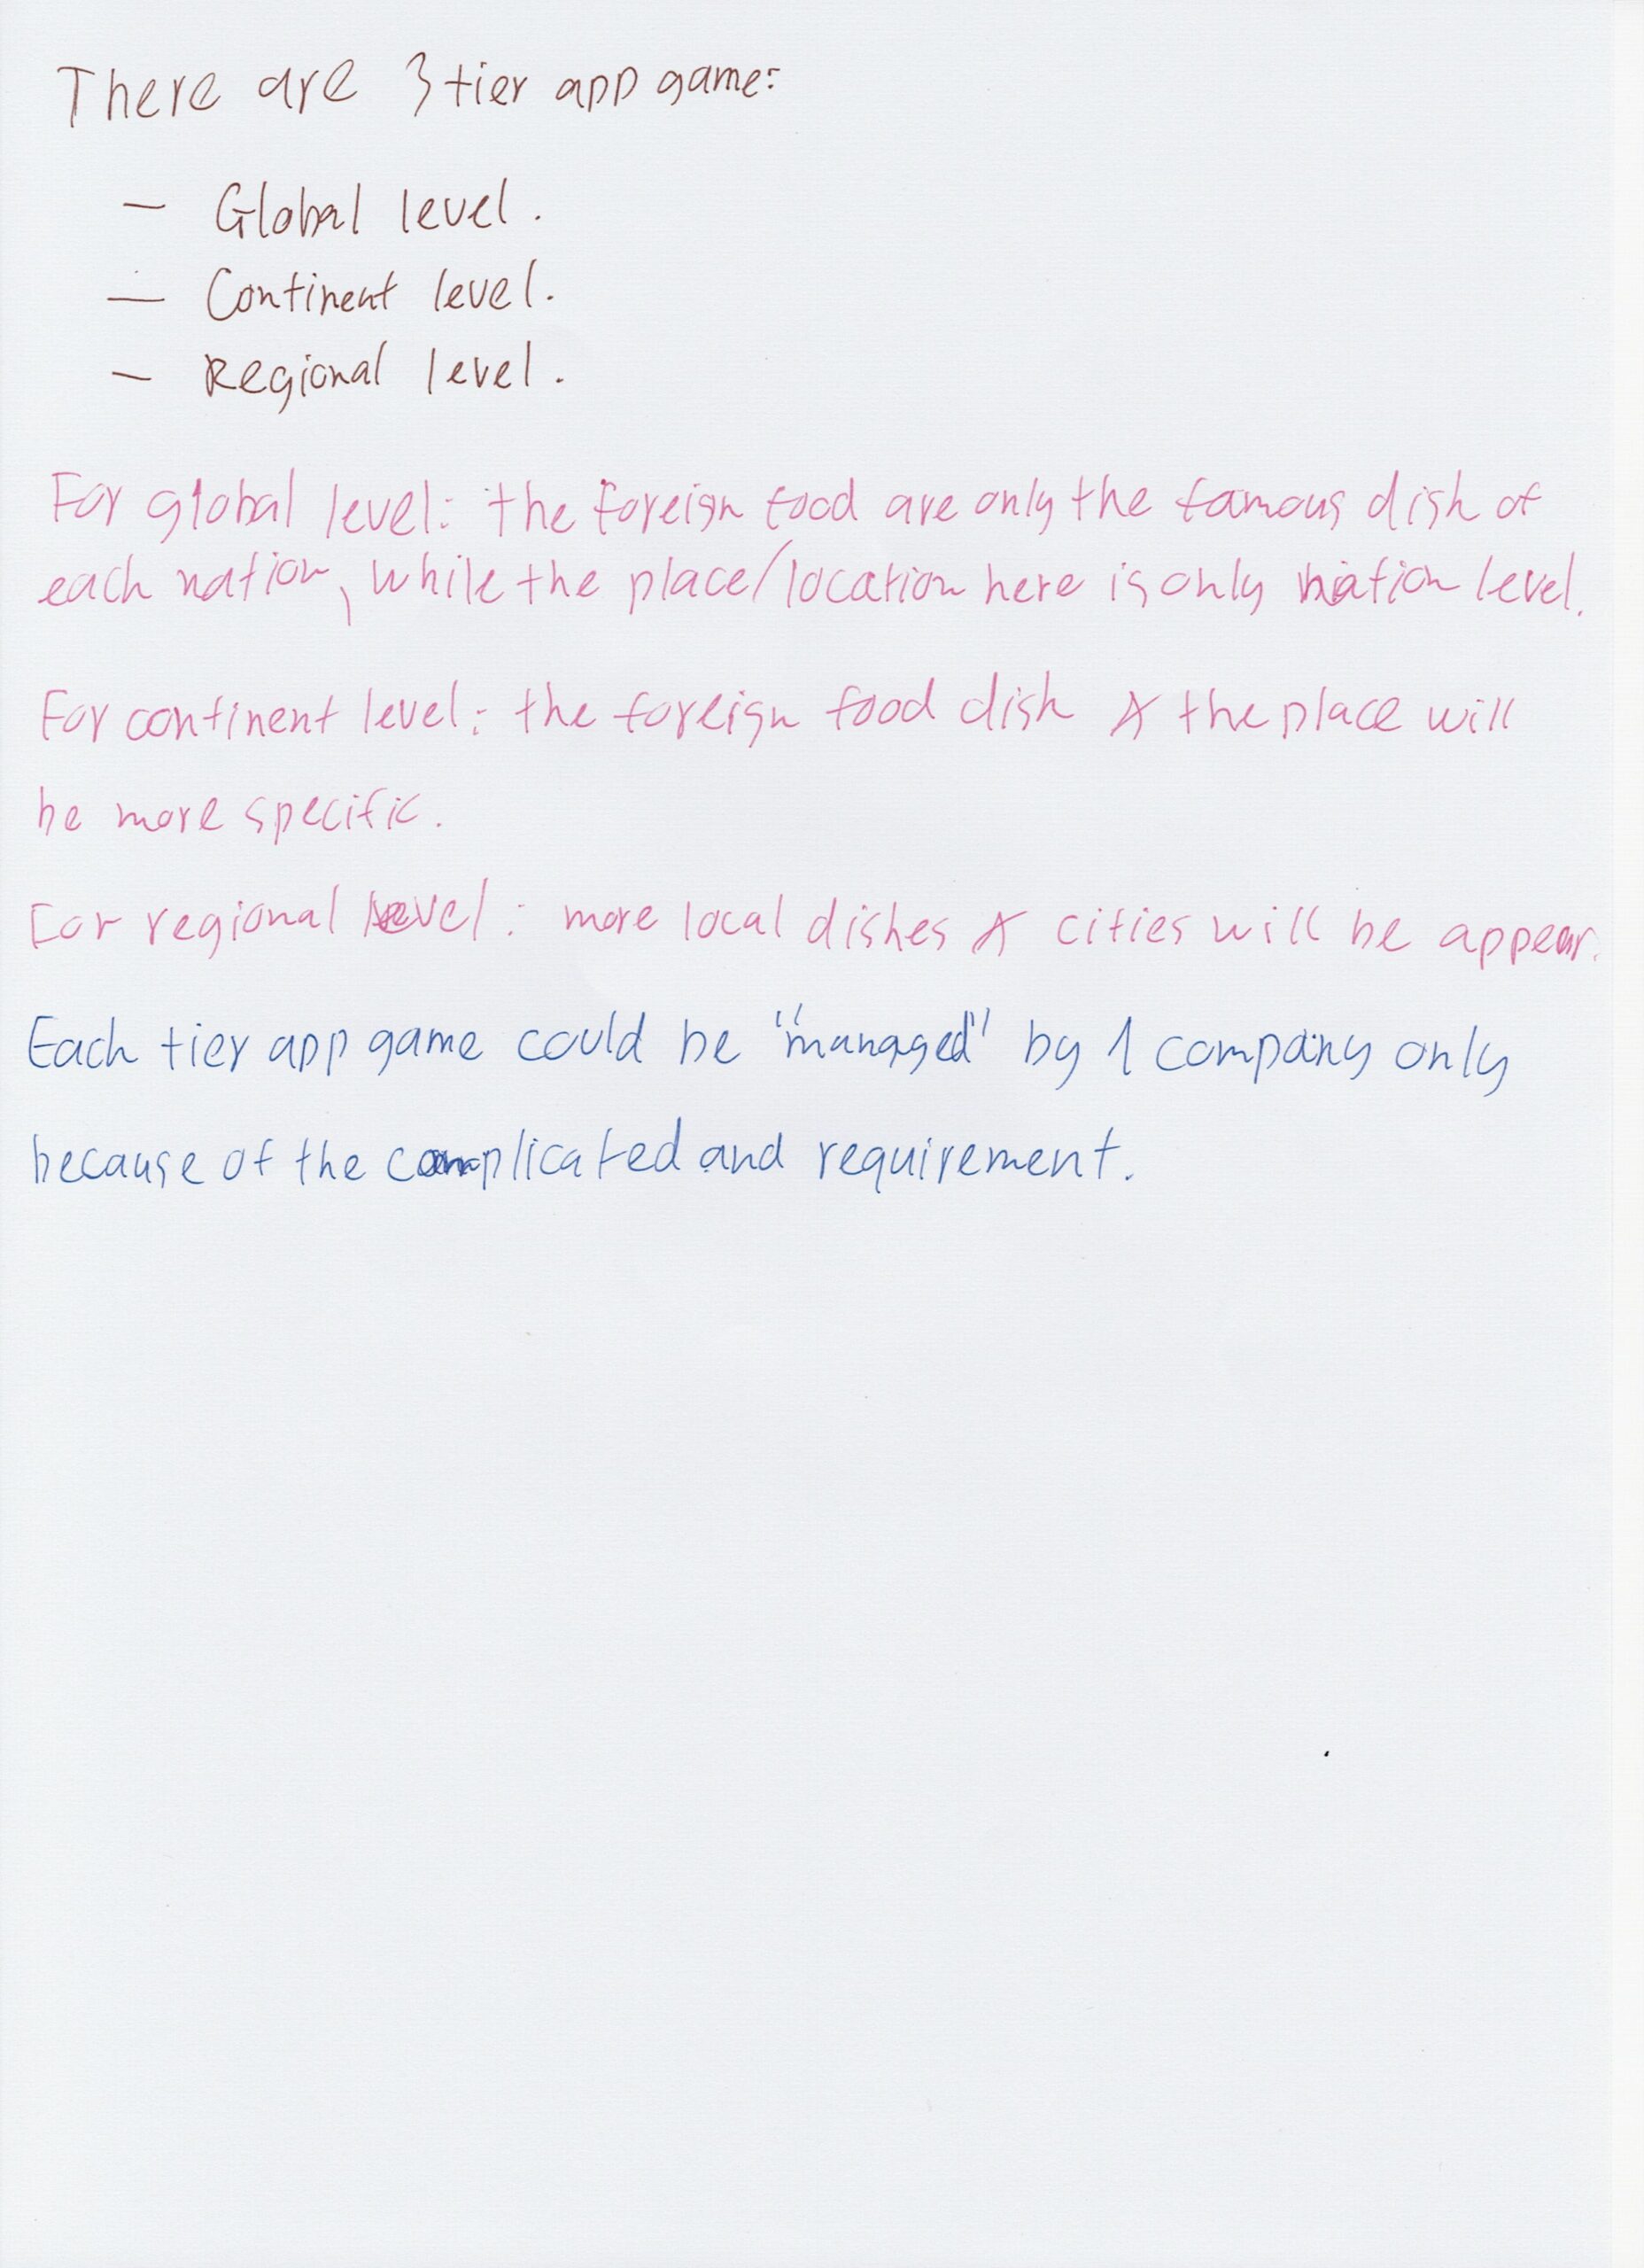 There are 3 tier app game:
- Global level.
- Continent level.
- Regional level.
For global level: the foreign food are only the famous dish of
each nation, while the place/location here is only nation level.
For continent level: the foreign food dish & the place will
be more specific.
For regional level: more local dishes & cities will be appear.
Each tier app game could be "managed" by 1 company only
because of the complicated and requirement.